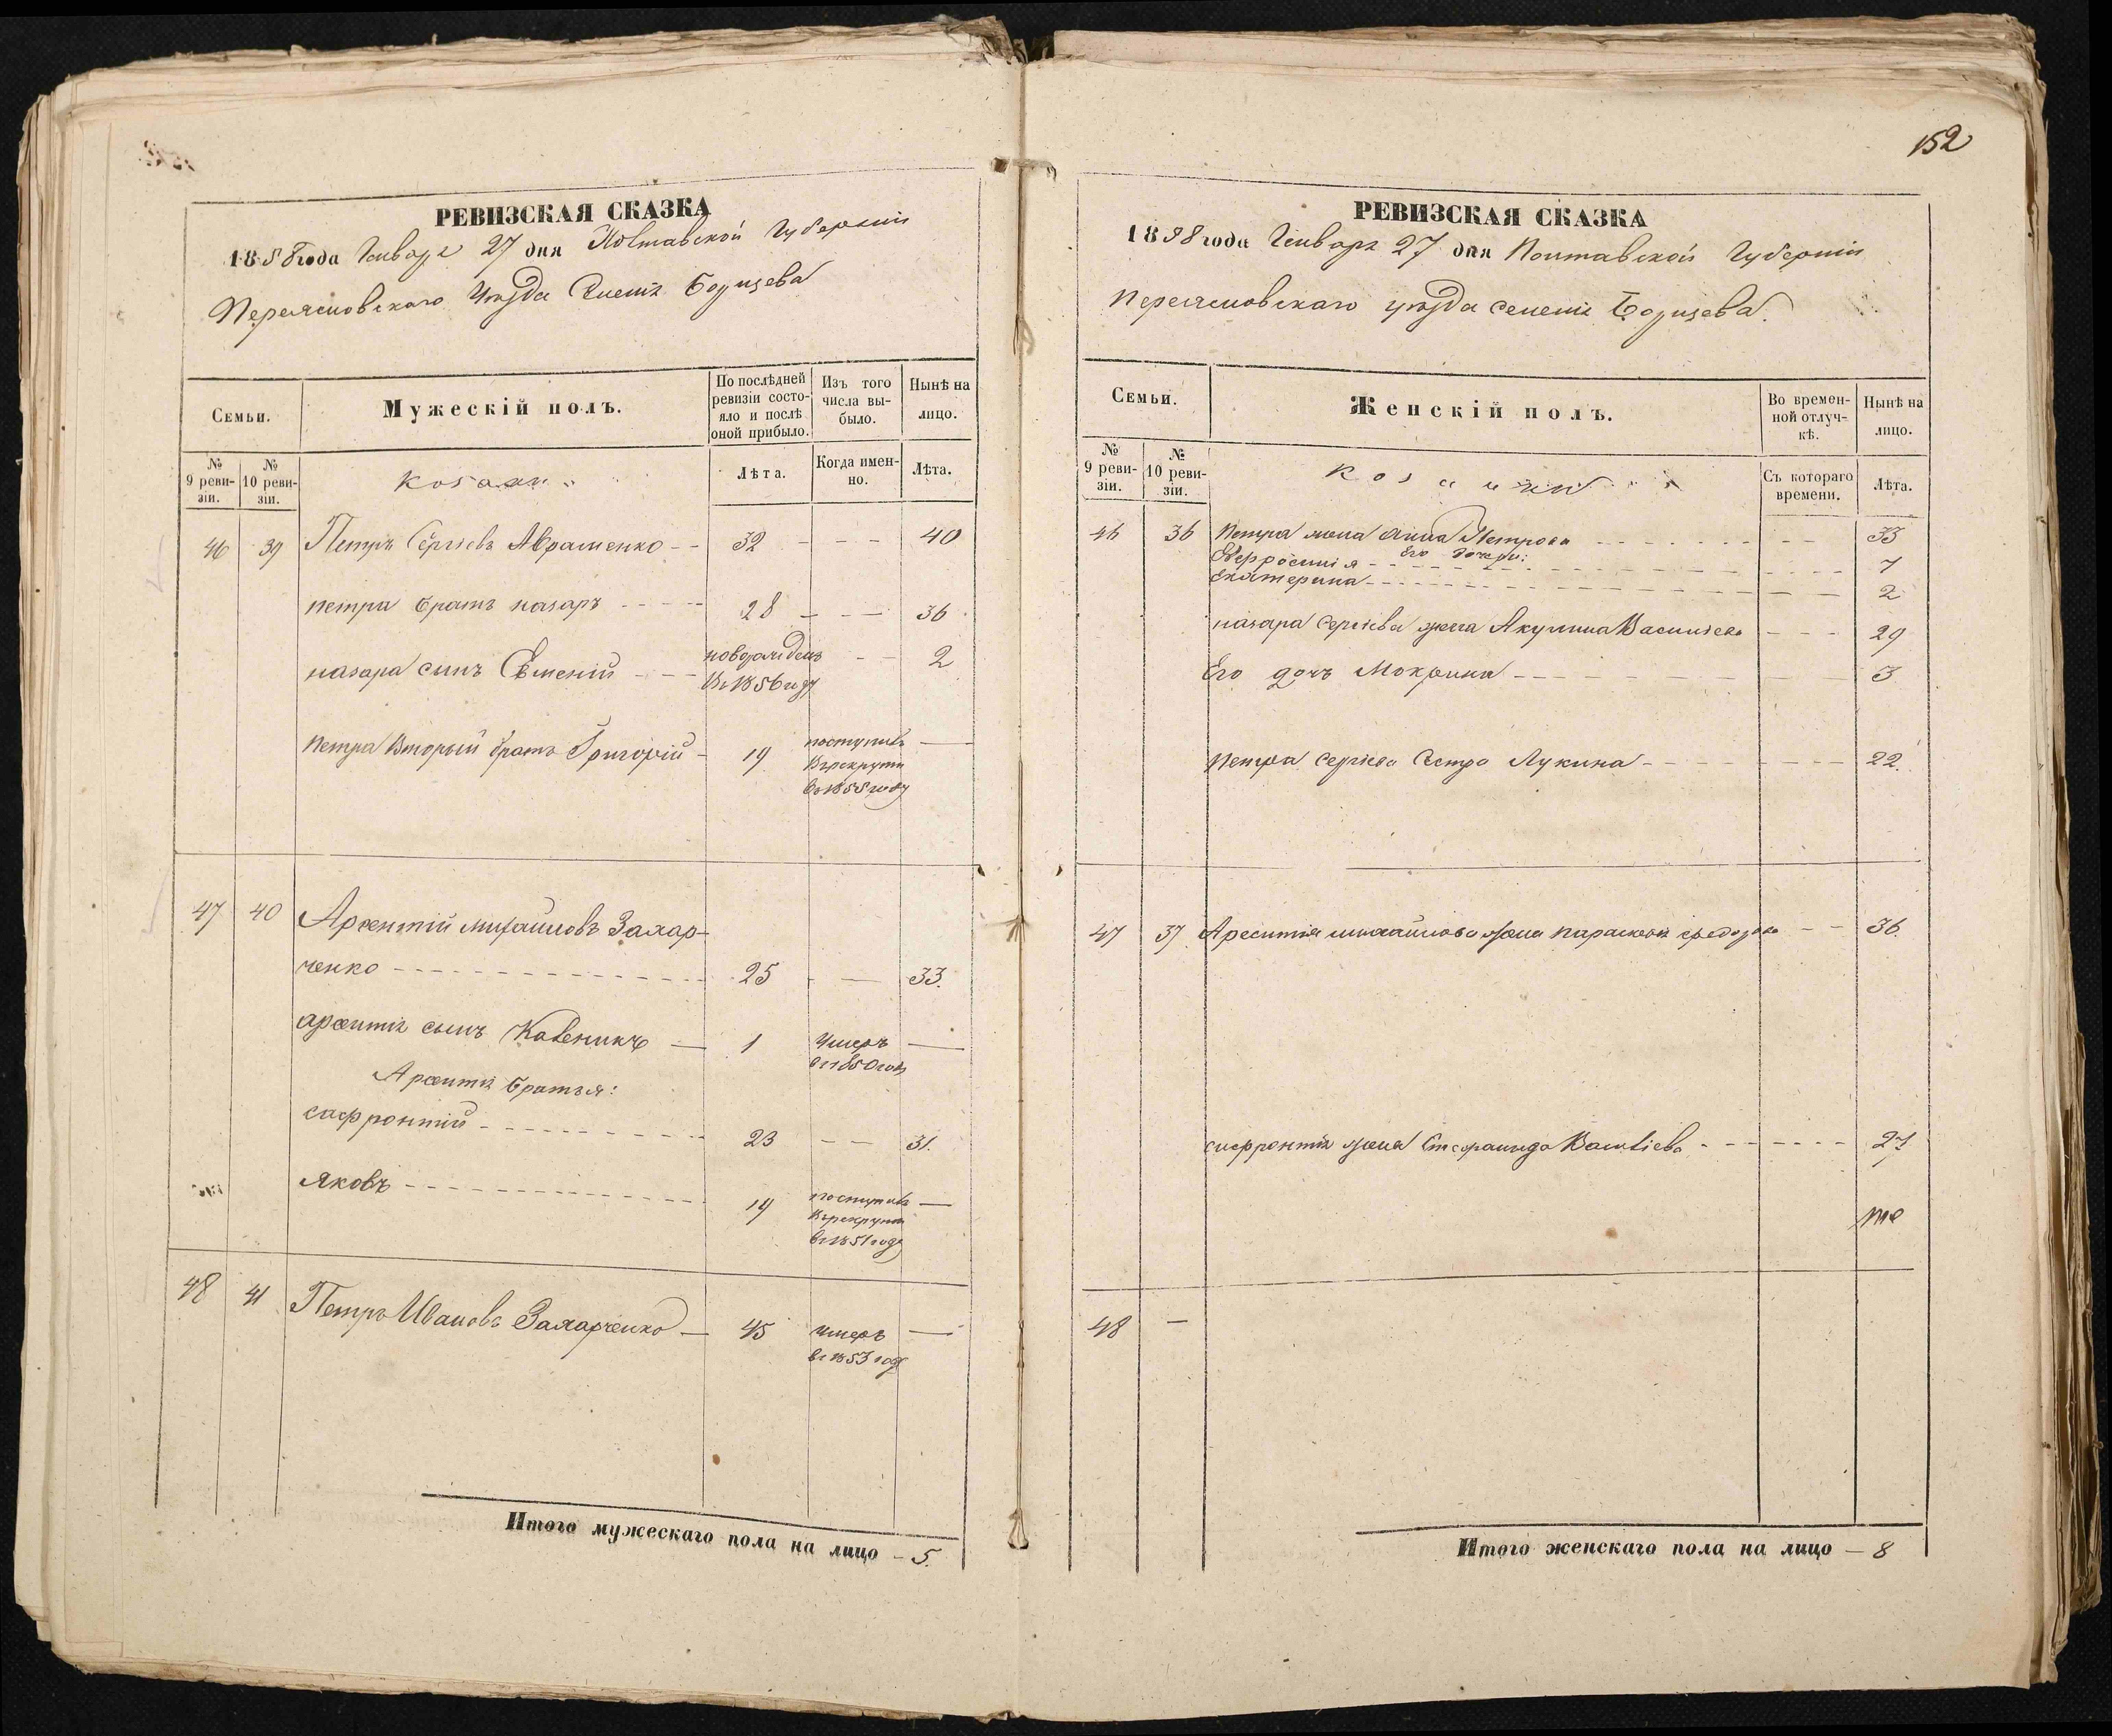 152
РЕВИЗСКАЯ СКАЗКА
1858 года Генваря 27 дня Полтавской Губернии
Переясловскаго Уезда Борщева
Семьи.
Мужескій полъ.
По послѣдней ревизіи состояло и послѣ оной прибыло.
Изъ того числа выбыло.
Нынѣ на лицо.
№ 9 ревизіи.
№ 10 ревизіи.
Козаки
Лѣта.
Когда именно.
Лѣта.
46 39 Петръ Сергіевъ Авраменко 32 40
петра братъ назаръ 28 36
назара сынъ новорожденъ 2
въ 1856 году
Петра Второй братъ Григорій 19 поступилъ
въ рекруты
въ 1855 году
47 40 Арсентій михайловъ Захар-
ченко 25 33.
арсентія сынъ 1 Умеръ
въ 1850 году
Арсентія братья:
сафронтій 23 31.
Яковъ 19 поступилъ
въ рекруты
въ 1851 году
48 41 Петръ Ивановъ Захарченко 45 умеръ
въ 1853 году
Итого мужескаго пола на лицо — 5.
РЕВИЗСКАЯ СКАЗКА
1858 года Генваря 27 дня Полтавской Губерніи
Переясловскаго уезда Борщева.
Семьи.
Женскій полъ.
Во временной отлучкѣ.
Нынѣ на лицо.
№ 9 ревизіи.
№ 10 ревизіи.
Козачки
Съ котораго времени.
Лѣта.
46 36 Петра жена Анна Петрова 33
Его дочери:
Евфросинія 7
Екатерина 2
назара Сергіева жена Акулина Васильева 29
Его дочь Мокрина 3
Петра Сергіева Сестра Лукина 22.
47 37 Арсентія михайлова жена параскева 36.
сафронтія жена 27
48 —
Итого женскаго пола на лицо — 8